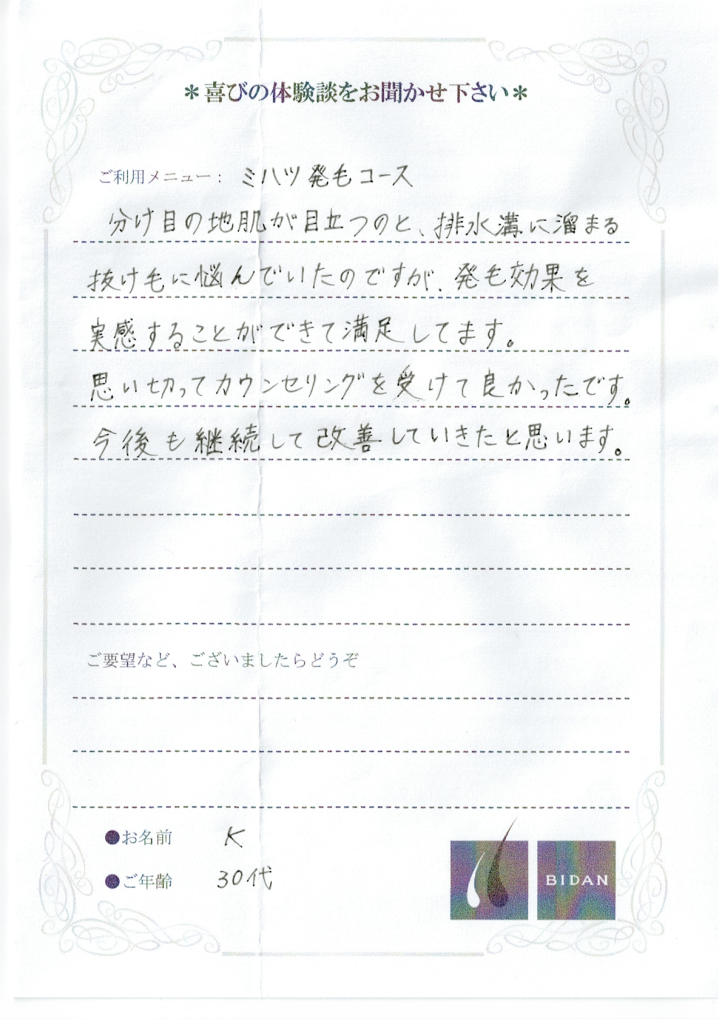 ＊喜びの体験談をお聞かせ下さい＊
ご利用メニュー： ミハツ発毛コース
分け目の地肌が目立つのと、排水溝に溜まる
抜け毛に悩んでいたのですが、発毛効果を
実感することができて満足してます。
思い切ってカウンセリングを受けて良かったです。
今後も継続して改善していきたと思います。
ご要望など、ございましたらどうぞ
●お名前 K
●ご年齢 30代
BIDAN